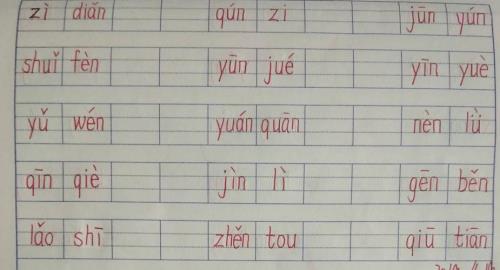 zì diǎn qún zi jūn yún
shuǐ fèn yūn jué yīn yuè
yǔ wén yuán quān nèn lǜ
qīn qiè jìn lì gēn běn
lǎo shī zhěn tou qiū tiān